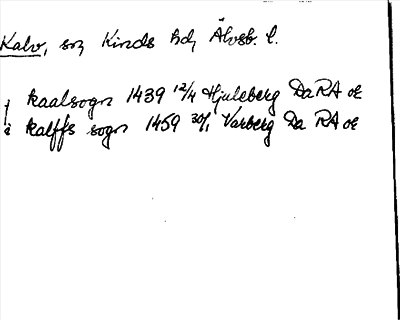 Kalv, sn, Kinds hd, Älvsb. l.
j kaalsogn 1439 12/4 Hjuleberg Da RA or
i kalffs sogn 1459 30/1 Varberg Da RA or